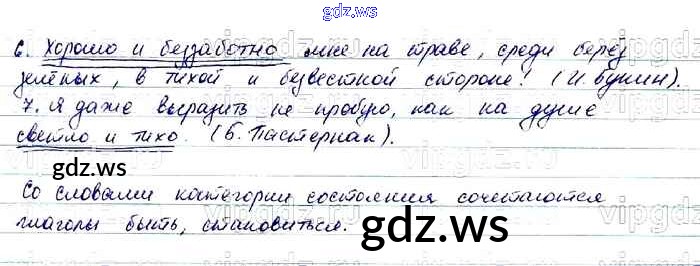 gdz.ws
6. Хорошо и беззаботно мне на траве, среди берёз
зелёных, в тихой и безвестной стороне! (И. Бунин).
7. Я даже выразить не пробую, как на душе
светло и тихо. (Б. Пастернак).
gdz.ws
Со словами категории состояния сочетаются
глаголы быть, становиться.
gdz.ws